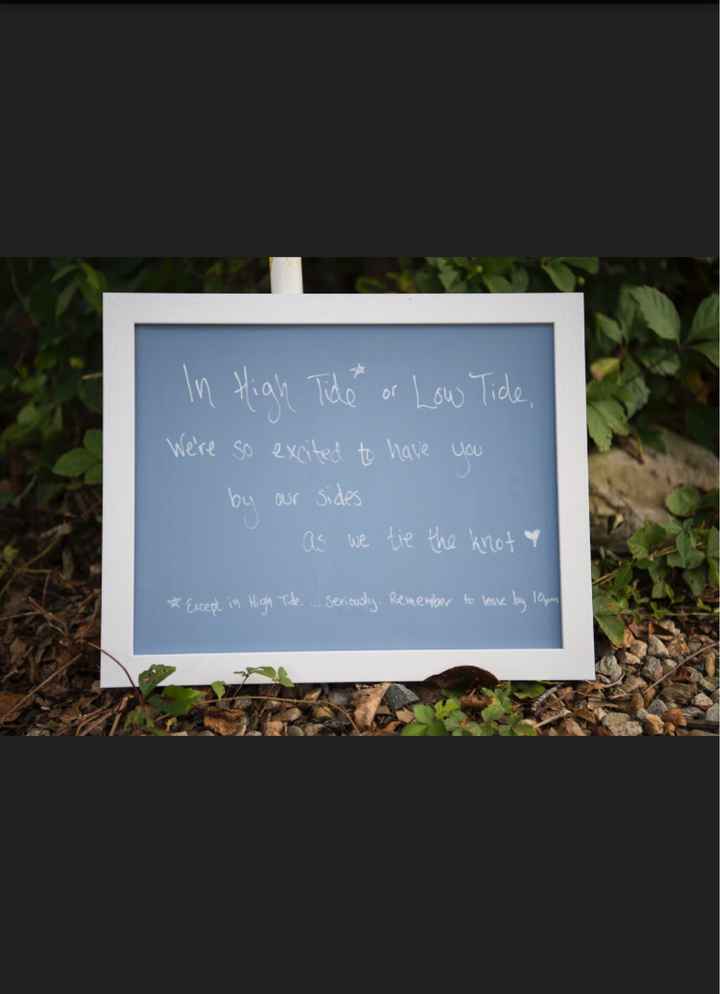 In High Tide* or Low Tide,
We're so excited to have you
by our sides
as we tie the knot ♥
* Except in High Tide... Seriously. Remember to leave by 10pm